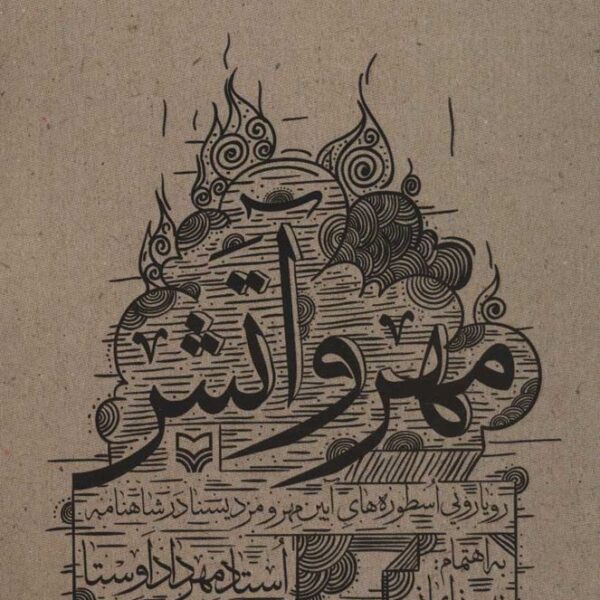 مهر و آتش
رویارویی اسطوره‌های آیین مهر و مزدیسنا در شاهنامه
به اهتمام:
استاد مهرداد اوستا